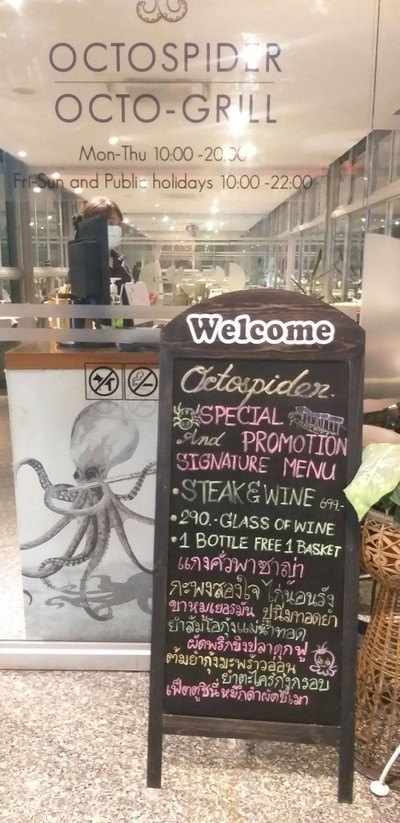 OCTOSPIDER
OCTO-GRILL
Mon-Thu 10:00 -20:00
Fri-Sun and Public holidays 10:00 -22:00
Welcome
Octospider.
SPECIAL
And PROMOTION
SIGNATURE MENU
• STEAK & WINE 699.-
• 290.- GLASS OF WINE
• 1 BOTTLE FREE 1 BASKET
แกงคั่วพาซาญ่า
กะพงสองใจ ไก่นอนรัง
ขาหมูเยอรมัน ปูนิ่มทอดยำ
ยำส้มโอกุ้งแม่น้ำทอด
ผัดพริกขิงปลาดุกฟู
ต้มยำกุ้งมะพร้าวอ่อน
ยำตะไคร้กุ้งกรอบ
เฟ็ตตูชินี่หมึกดำผัดขี้เมา